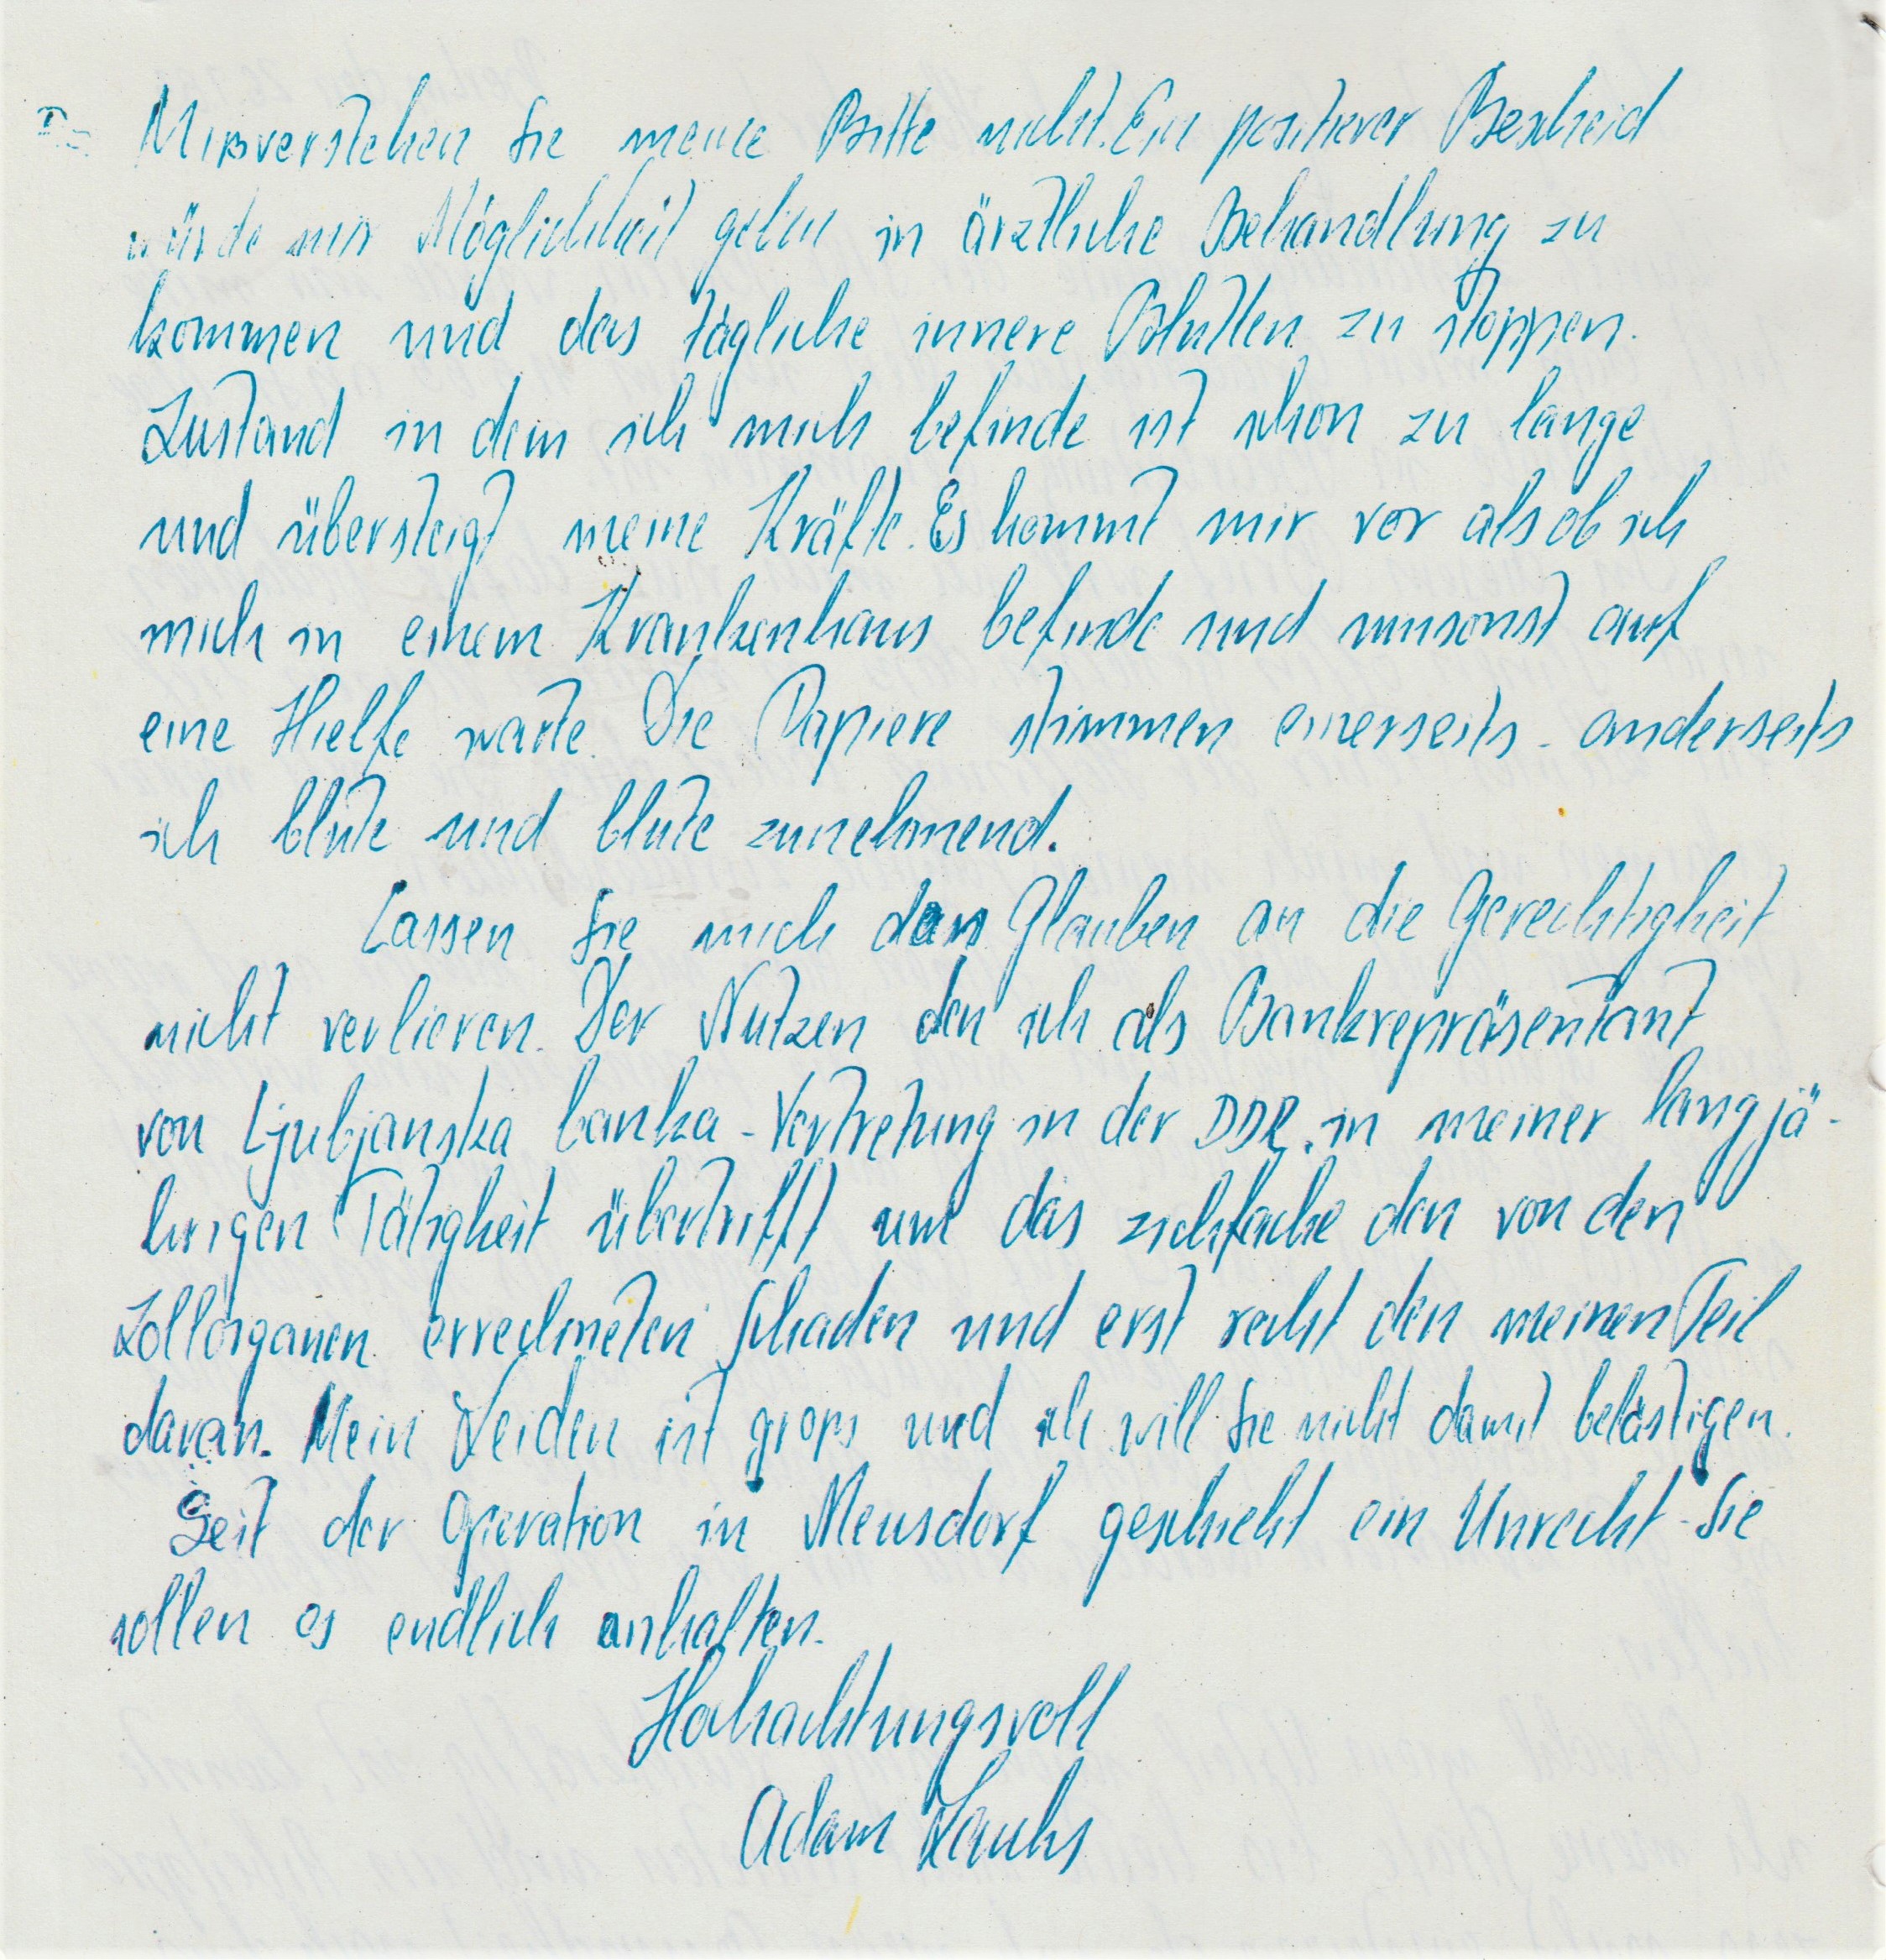 Mißverstehen Sie meine Bitte nicht. Ein positiever Bescheid
würde mir Möglichkeit geben in ärztliche Behandlung zu
kommen und das tägliche innere Blutten zu stoppen.
Zustand in dem ich mich befinde ist schon zu lange
und übersteigt meine Kräfte. Es kommt mir vor als ob ich
mich in einem Krankenhaus befinde und umsonst auf
eine Hielfe warte. Die Papiere stimmen einerseits - anderseits
ich blute und blute zunehmend.
Lassen Sie mich den Glauben an die Gerechtigkeit
nicht verlieren. Der Nutzen den ich als Bankrepräsentant
von Ljubjanska banka - Vertretung in der DDR, in meiner langjä-
hrigen Tätigkeit übertrifft um das zichfache den von den
Zollorganen errechneten Schaden und erst recht den meinen Teil
daran. Mein Leiden ist gross und ich will Sie nicht damit belästigen.
Seit der Operation in Meusdorf geschieht ein Unrecht - Sie
sollen es endlich anhalten.
Hochachtungsvoll
Adam